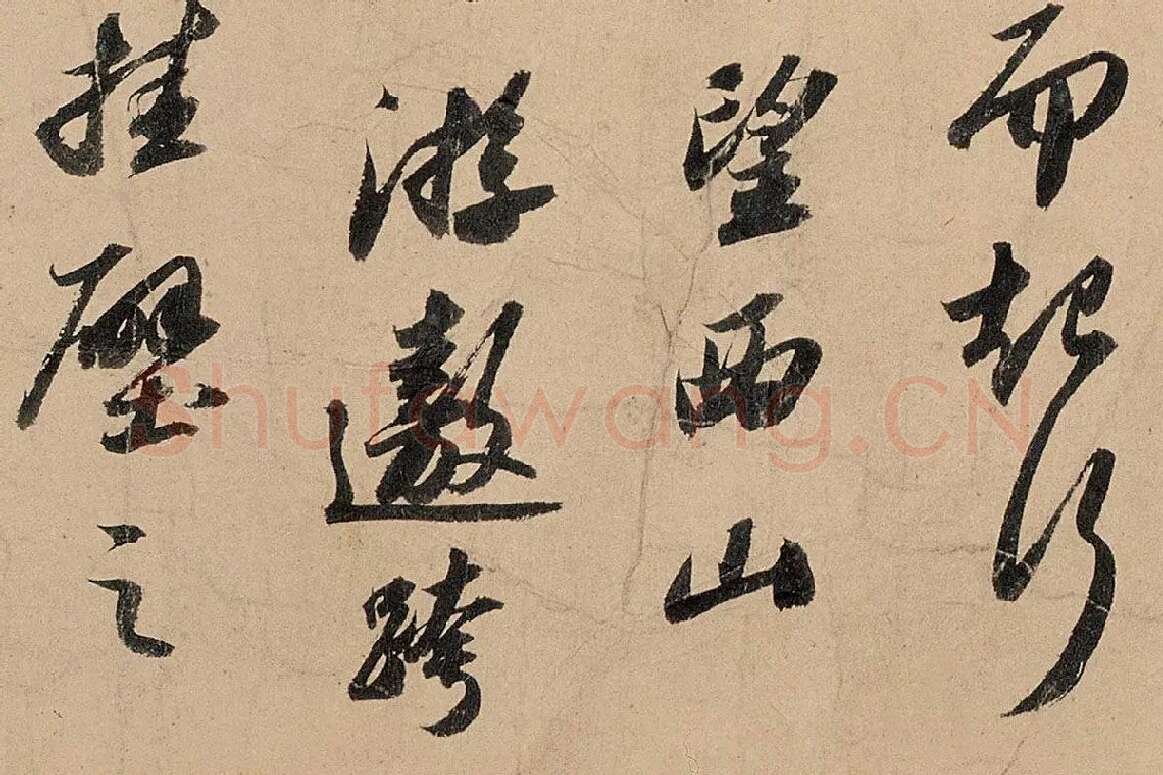 而起行
望西山
游遨跨
挂壁之
Shufawang.CN